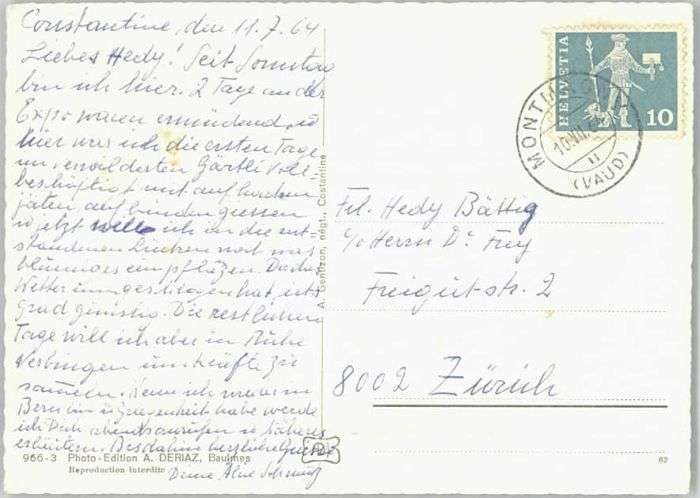 Constantine, den 11.7.64
Liebes Hedy! Seit Sonntag
bin ich hier. 2 Tage an der
Expo waren ermüdend, u
hier war ich die ersten Tage
im verwilderten Gärtli voll
beschäftigt mit aufhacken
jäten aufbinden giessen
jetzt will ich in die ent-
standenen Lücken noch was
blumiges einpflanzen. Da das
Wetter umgeschlagen hat, ists
grad günstig. Die restlichen
Tage will ich aber in Ruhe
verbringen um Kräfte zu
sammeln. Wenn ich wieder in
Bern bin u Gelegenheit habe werde
ich Dich abends anrufen u Näheres
erläutern. Bis dahin herzliche Grüsse
Deine
966-3 Photo-Edition A. DERIAZ, Baulmes
Reproduction interdite
A. Gentizon, négt., Constantine
HELVETIA
10
MONTMAGNY
(VAUD)
Frl. Hedy Bättig
c/o Herrn Dr. Frey
Freigutstr. 2
8002 Zürich
62